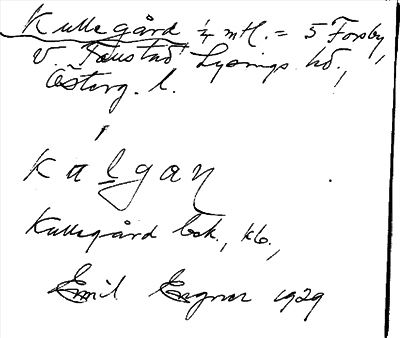 Kullegård ¼ mtl. = 5 Forsby,
V. Tollstad Lysings hd.,
Österg. l.
kal̲gaɳ
Kullegård bok., kb.,
Emil Eegnor 1929